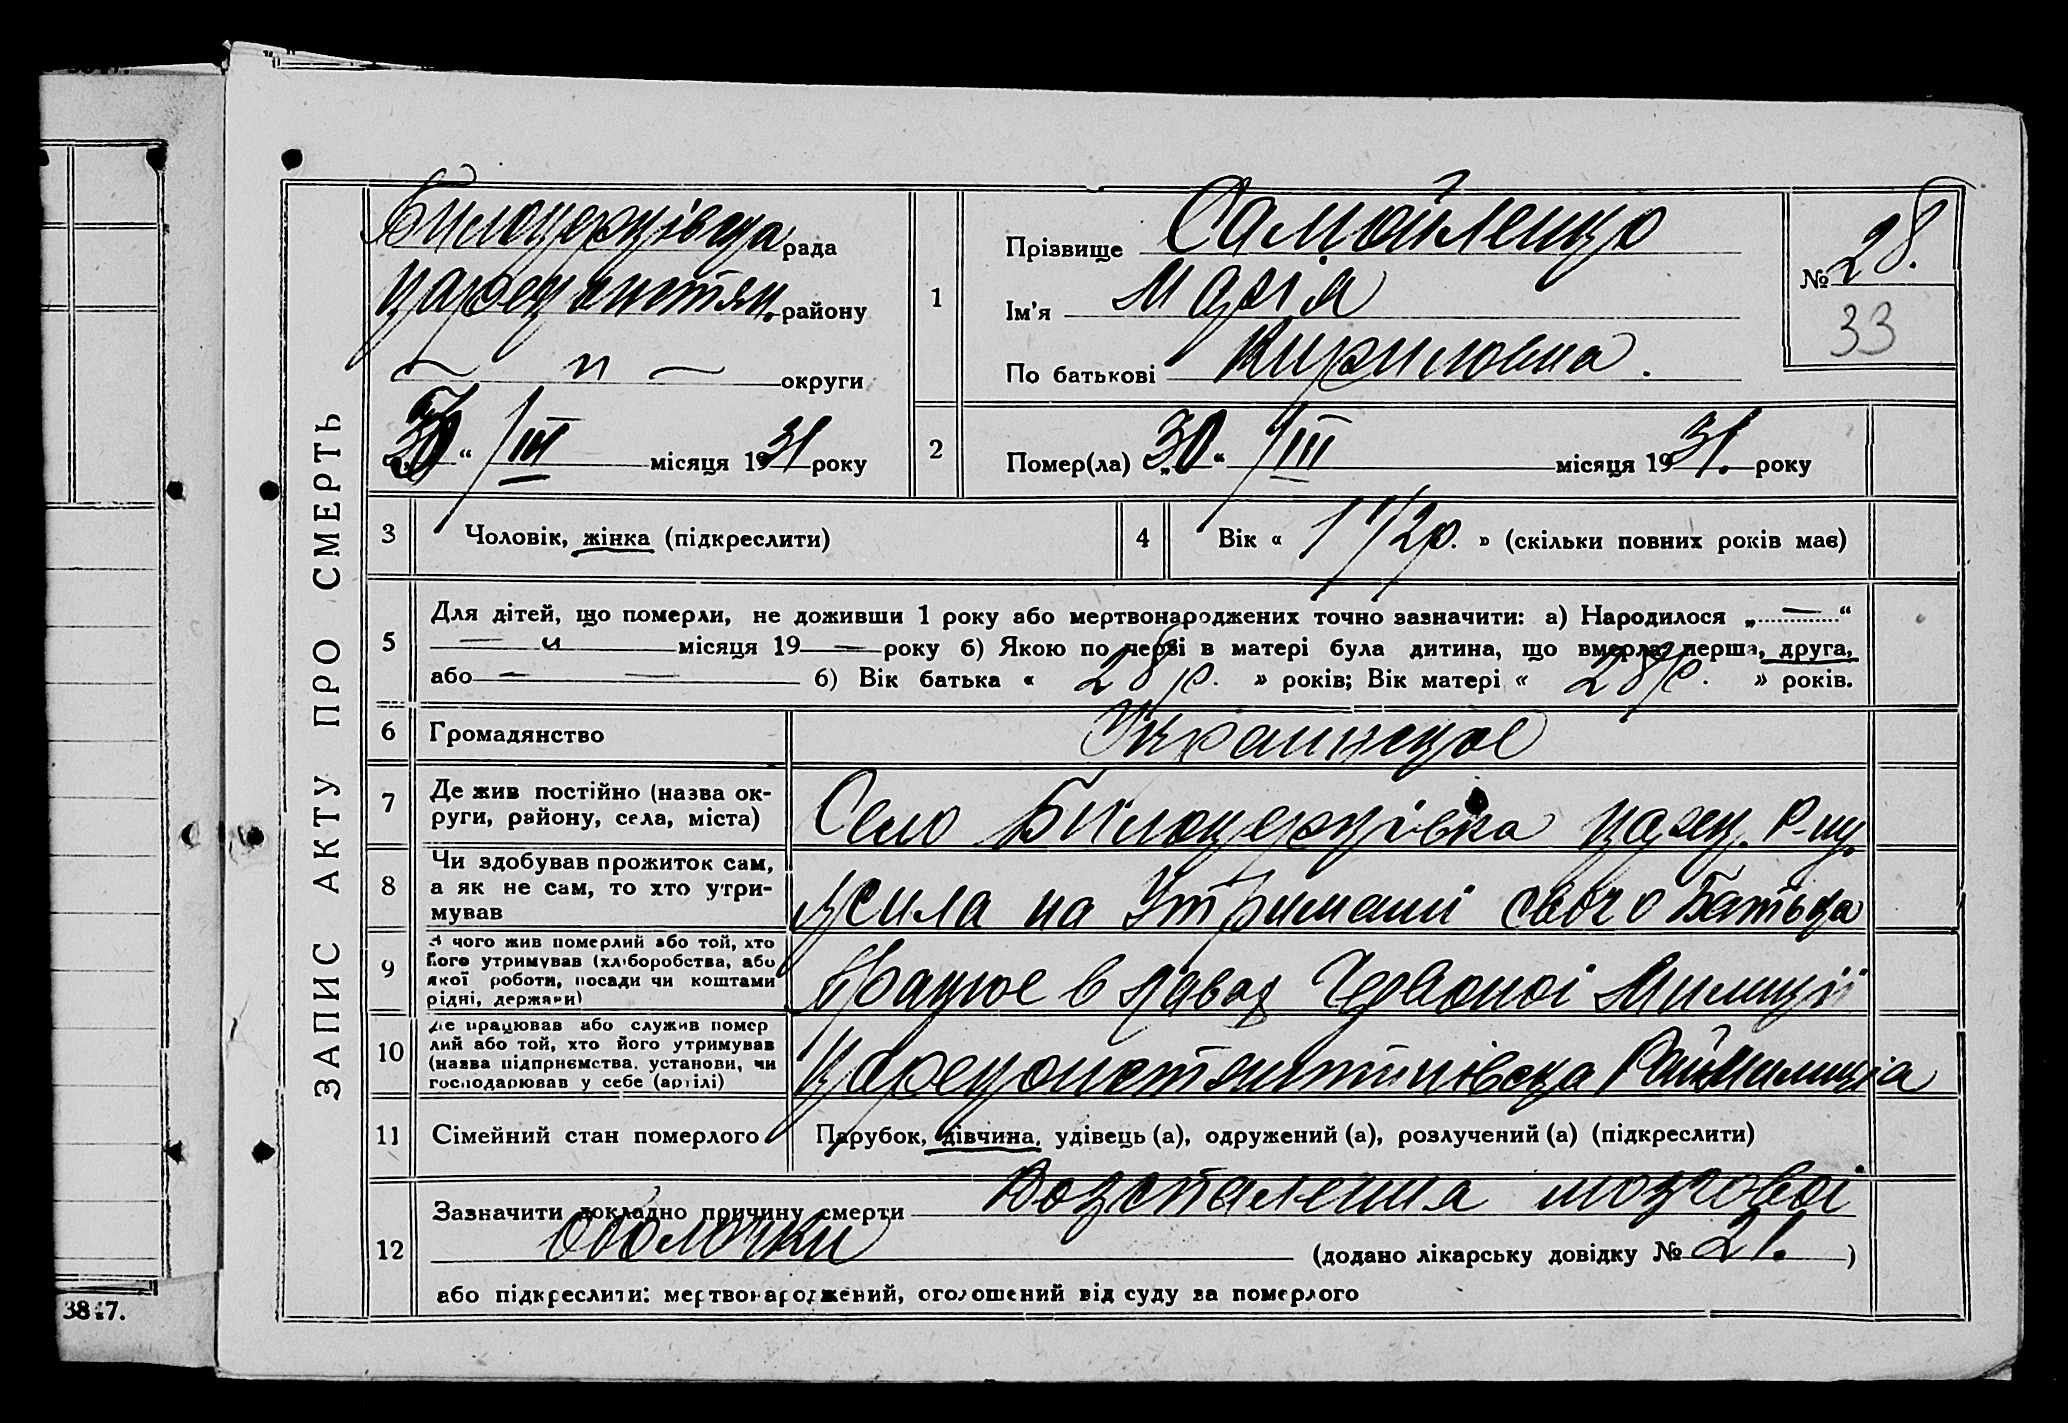 ЗАПИС АКТУ ПРО СМЕРТЬ
Билоцерковська рада
Цареконстян. району
— " — округи
30 “ / III місяця 1931 року
1
Прізвище Самойленко
Ім'я Марія
По батькові Кириловна.
№ 28.
33
2
Помер(ла) „30“ / III місяця 1931. року
3
Чоловік, жінка (підкреслити)
4
Вік « 1 1/2 р. » (скільки повних років має)
5
Для дітей, що померли, не доживши 1 року або мертвонароджених точно зазначити: а) Народилося „ — “
— " — місяця 19 — року б) Якою по черві в матері була дитина, що вмерла, перша, друга,
або — — б) Вік батька « 28 р. » років; Вік матері « 28 р. » років.
6
Громадянство
Украинское
7
Де жив постійно (назва ок-
руги, району, села, міста)
Село Билоцерковка царек. р-ну.
8
Чи здобував прожиток сам,
а як не сам, то хто утри-
мував
жила на Утримані свого Батька
9
З чого жив померлий або той, хто
його утримував (хліборобства, або
якої роботи, посади чи коштами
рідні, держави)
Працює в лавах Червоної Милиції
10
Де працював або служив помер
лий або той, хто його утримував
(назва підприємства, установи, чи
господарював у себе (артілі)
Цареконстянтинівска РайМилиція
11
Сімейний стан померлого
Парубок, дівчина, удівець (а), одружений (а), розлучений (а) (підкреслити)
12
Зазначити докладно причину смерти Возпаления мозговоі
оболочки (додано лікарську довідку № 21. )
або підкреслити: мертвонароджений, оголошений від суду за померлого
3847.